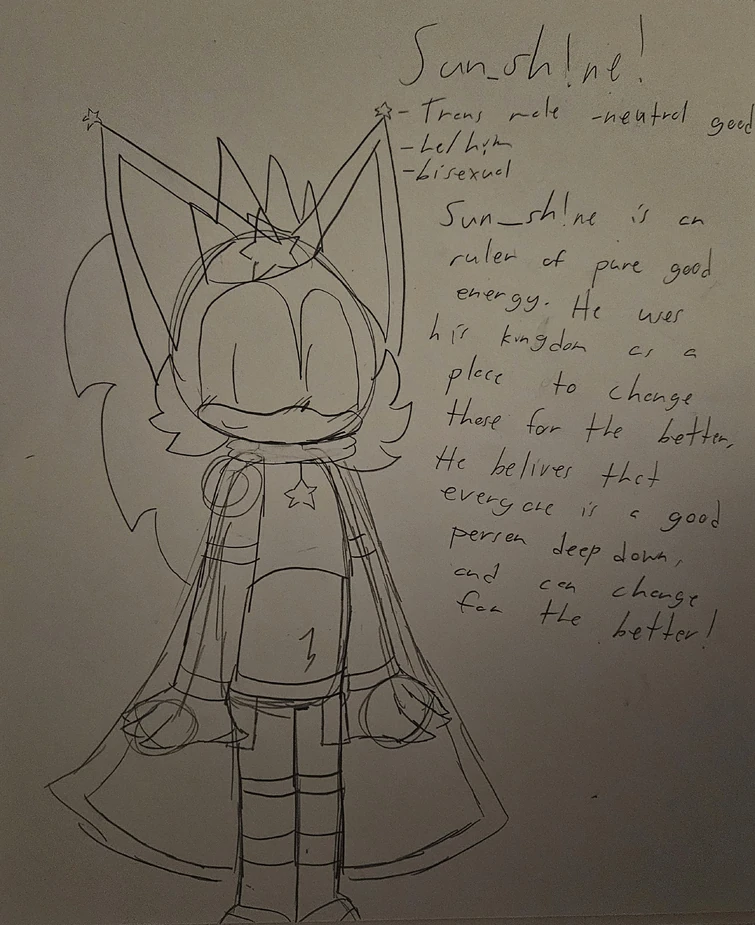 Sun_sh!ne!
- Trans male -neutral good
- he/him
- bisexual
Sun_sh!ne is an
ruler of pure good
energy. He uses
his kingdom as a
place to change
those for the better,
He belives that
everyone is a good
person deep down,
and can change
for the better!